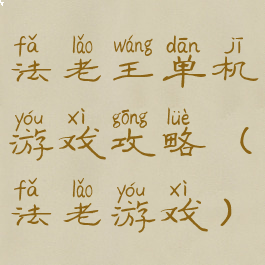 fǎ lǎo wáng dān jī
法老王单机
yóu xì gōng lüè
游戏攻略（
fǎ lǎo yóu xì
法老游戏）